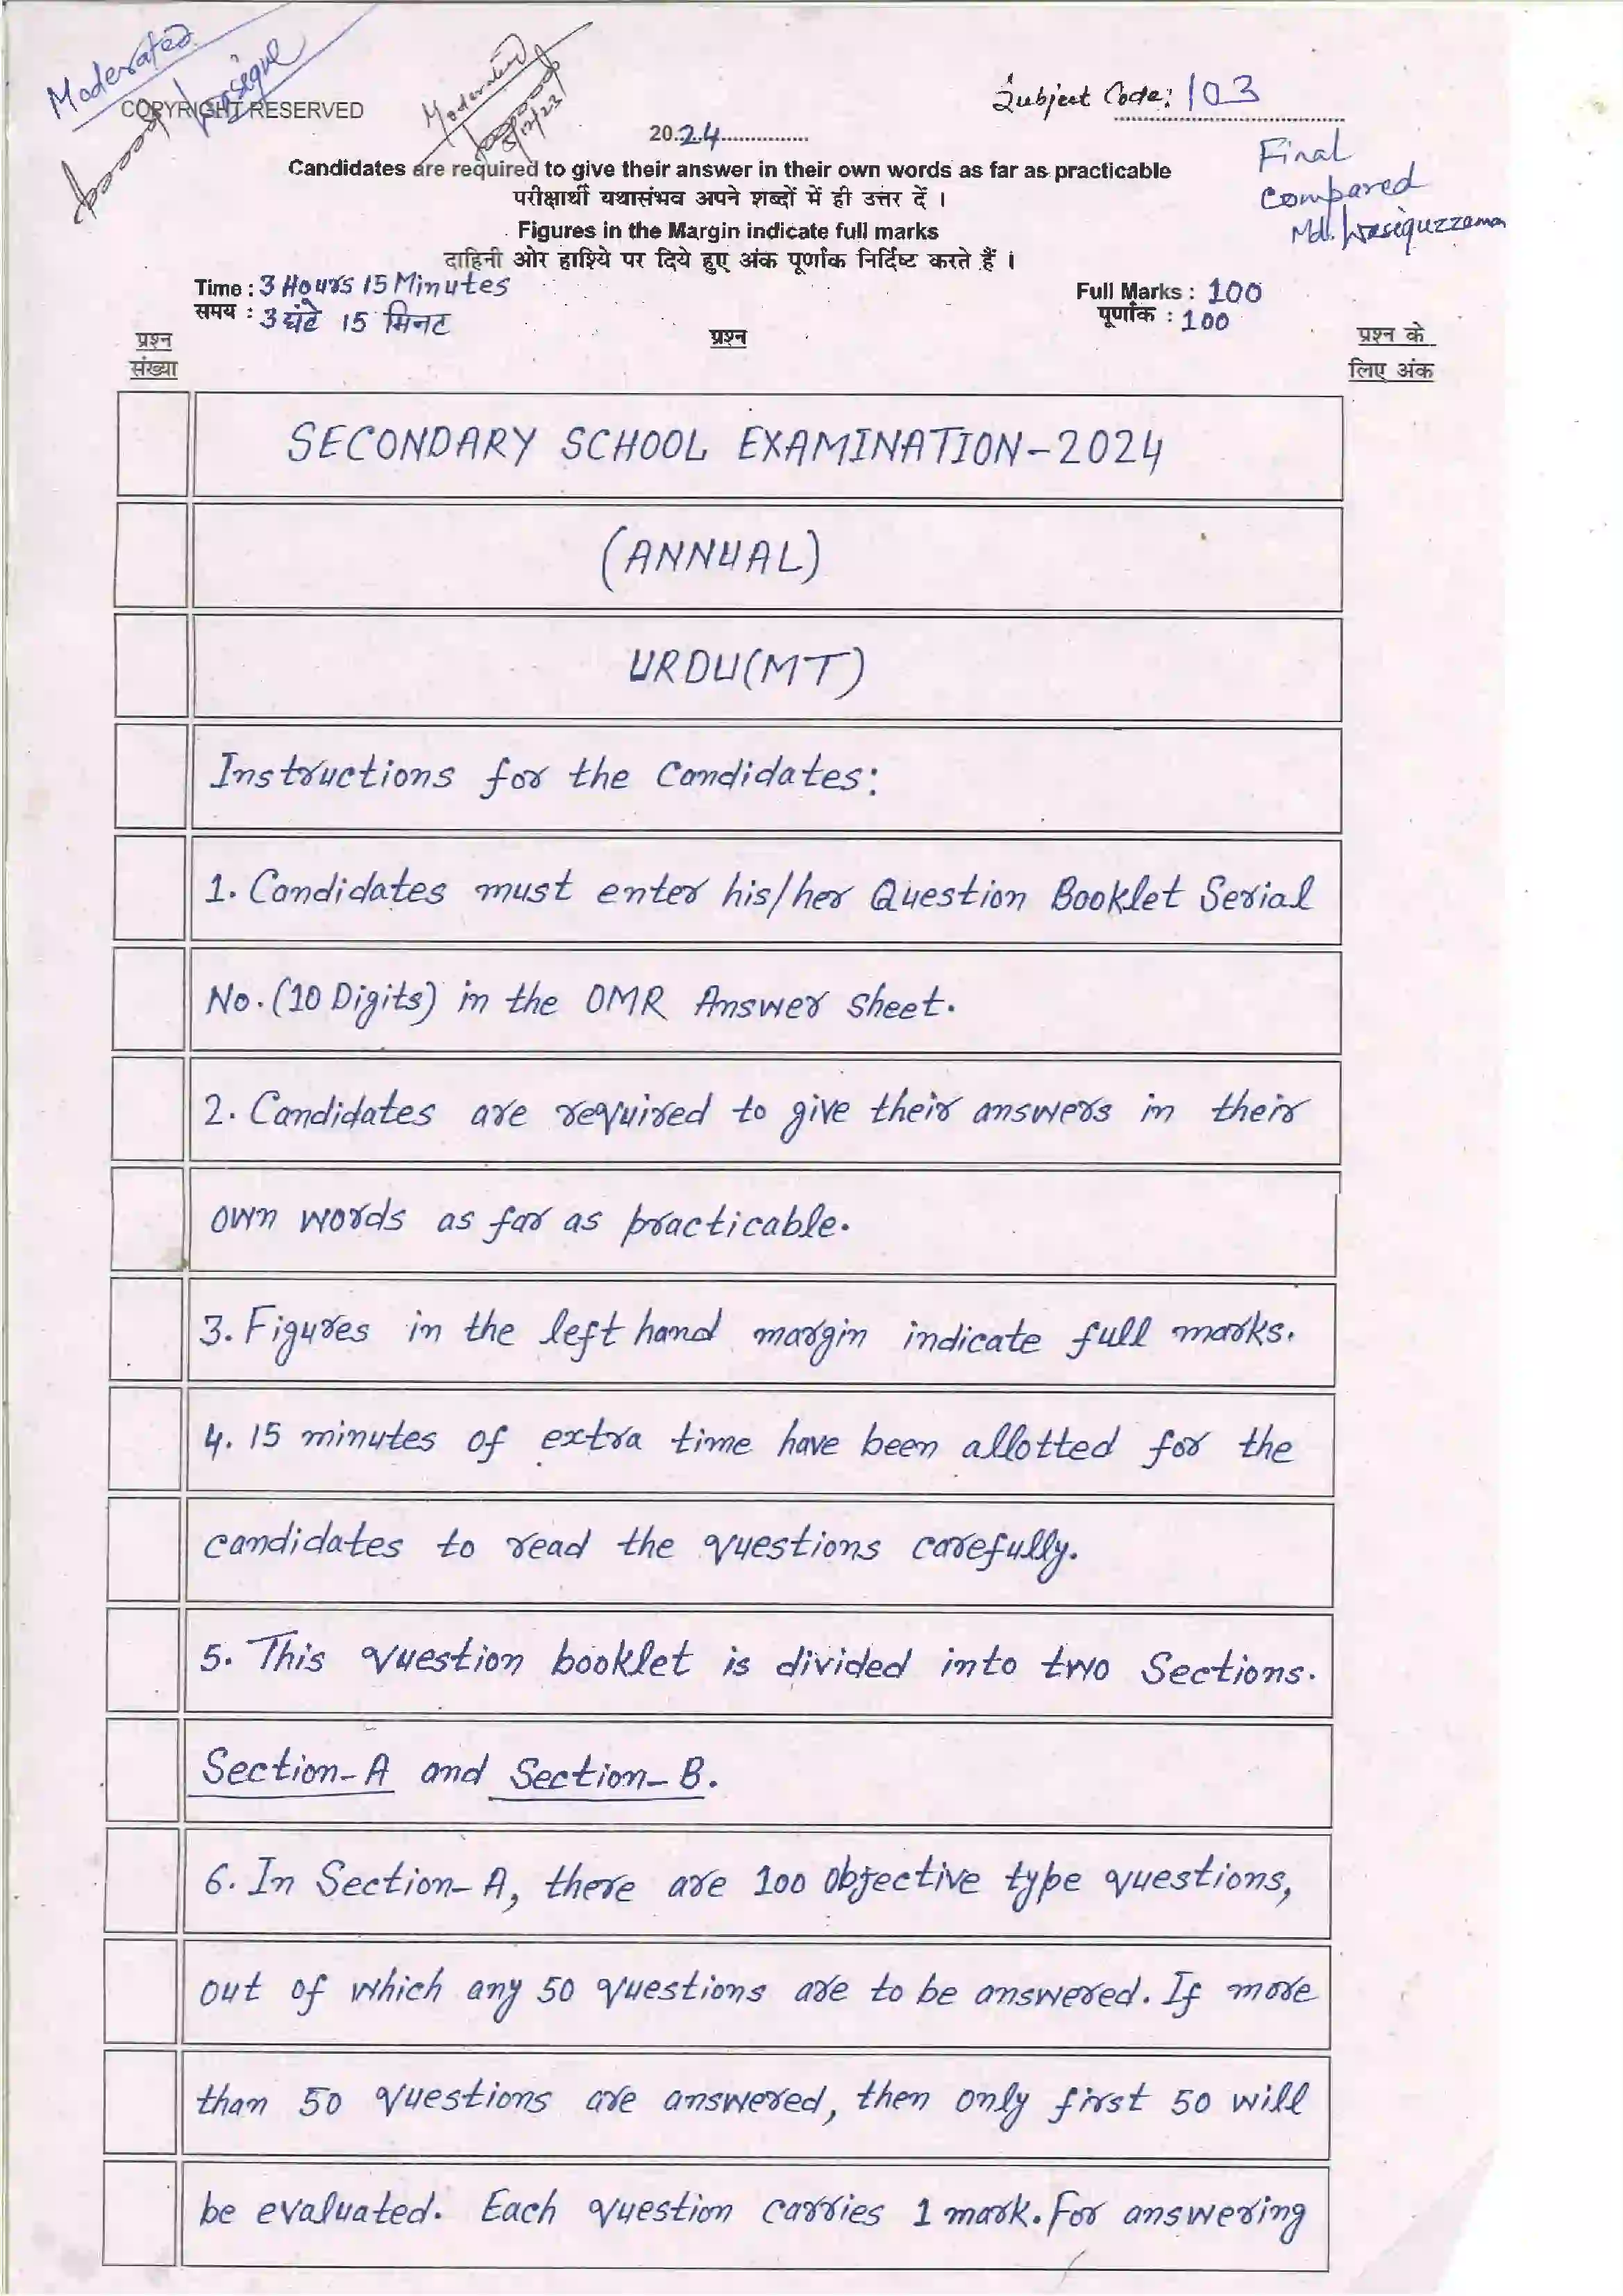 Moderated
Wasique
COPYRIGHT RESERVED
Moderated
Subject Code: 103
2024
Final
Compared
Md. Wasiquzzaman
Candidates are required to give their answer in their own words as far as practicable
परीक्षार्थी यथासंभव अपने शब्दों में ही उत्तर दें ।
Figures in the Margin indicate full marks
दाहिनी ओर हाशिये पर दिये हुए अंक पूर्णांक निर्दिष्ट करते हैं ।
Time : 3 Hours 15 Minutes Full Marks : 100
समय : 3 घंटे 15 मिनट पूर्णांक : 100
प्रश्न संख्या प्रश्न प्रश्न के लिए अंक
SECONDARY SCHOOL EXAMINATION-2024
(ANNUAL)
URDU(MT)
Instructions for the Candidates:
1. Candidates must enter his/her Question Booklet Serial
No. (10 Digits) in the OMR Answer Sheet.
2. Candidates are required to give their answers in their
own words as far as practicable.
3. Figures in the left hand margin indicate full marks.
4. 15 minutes of extra time have been allotted for the
candidates to read the questions carefully.
5. This question booklet is divided into two Sections.
Section-A and Section-B.
6. In Section-A, there are 100 objective type questions,
out of which any 50 questions are to be answered. If more
than 50 questions are answered, then only first 50 will
be evaluated. Each question carries 1 mark. For answering